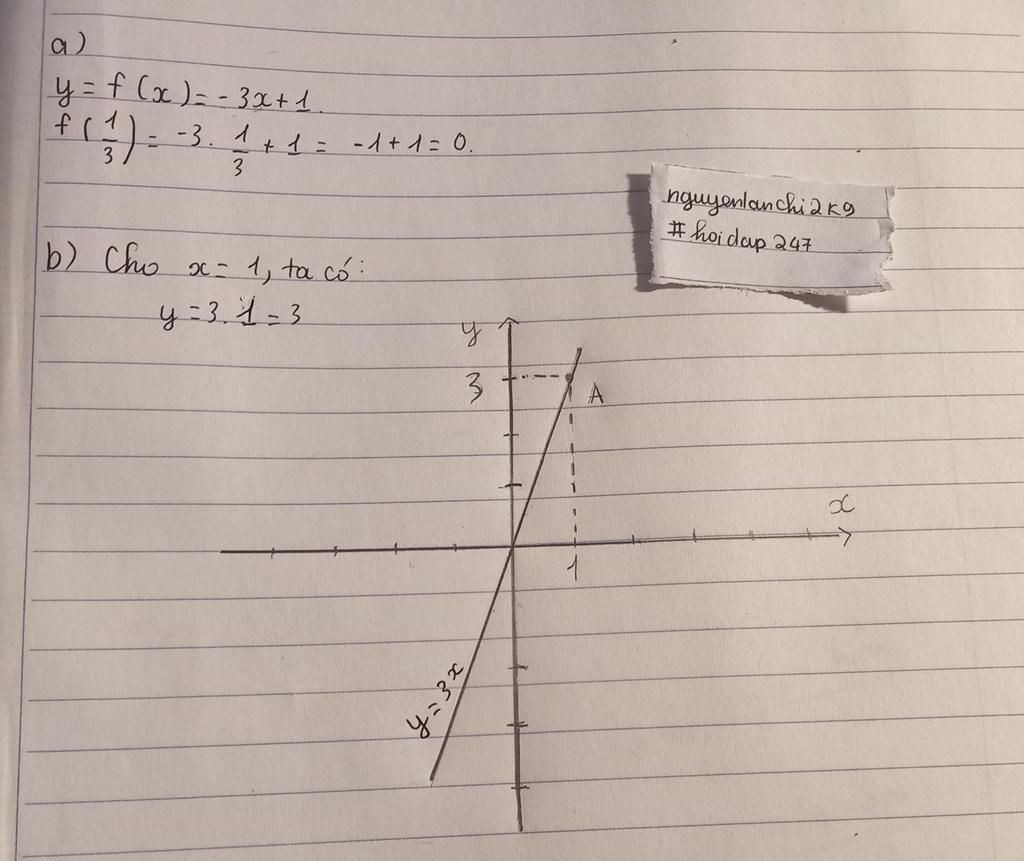 a)
y = f(x) = -3x+1.
f(1/3) = -3. 1/3 + 1 = -1+1 = 0.
nguyenlanchi2k9
# hoidap 247
b) Cho x = 1, ta có:
y = 3. 1 = 3
y
3
A
x
1
y = 3x